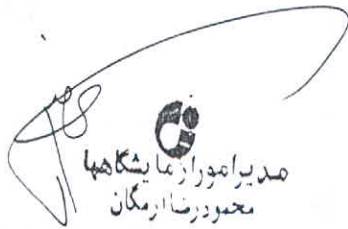 مدیر امور آزمایشگاهها
محمودرضا ارمگان